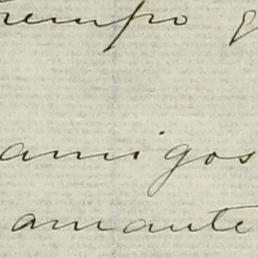 tiempo
amigos
amante